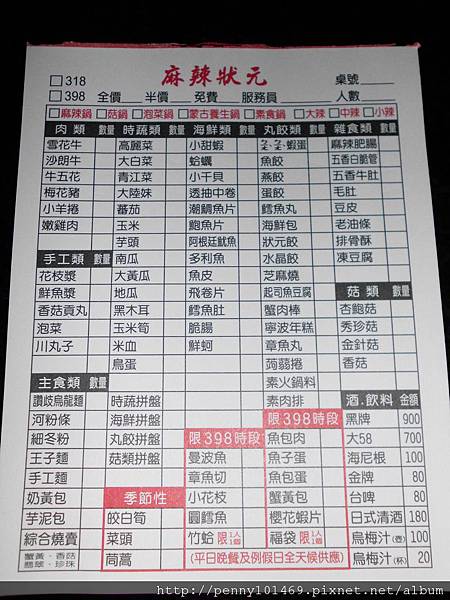 麻辣狀元
□318
桌號
□398 全價 半價 免費 服務員 人數
□麻辣鍋 □菇鍋 □泡菜鍋 □蒙古養生鍋 □素食鍋 □大辣 □中辣 □小辣
肉類 數量
雪花牛
沙朗牛
牛五花
梅花豬
小羊捲
嫩雞肉
手工類 數量
花枝漿
鮮魚漿
香菇貢丸
泡菜
川丸子
主食類 數量
讚歧烏龍麵
河粉條
細冬粉
王子麵
手工麵
奶黃包
芋泥包
綜合燒賣
蟹黃、香菇
翡翠、珍珠
時蔬類 數量
高麗菜
大白菜
青江菜
大陸妹
蕃茄
玉米
芋頭
南瓜
大黃瓜
地瓜
黑木耳
玉米筍
米血
鳥蛋
時蔬拼盤
海鮮拼盤
丸餃拼盤
菇類拼盤
季節性
皎白筍
菜頭
茼蒿
海鮮類 數量
小甜蝦
蛤蠣
小干貝
透抽中卷
潮鯛魚片
鮑魚片
阿根廷魷魚
多利魚
魚皮
飛卷片
鱈魚肚
脆腸
鮮蚵
限398時段
曼波魚
章魚切
小花枝
圓鱈魚
竹蛤 限1人1個
丸餃類 數量
蝦蛋
魚餃
燕餃
蛋餃
鱈魚丸
海鮮包
狀元餃
水晶餃
芝麻燒
起司魚豆腐
蟹肉棒
寧波年糕
章魚丸
蒟蒻捲
素火鍋料
素肉排
限398時段
魚包肉
魚子蛋
魚包蛋
蟹黃包
櫻花蝦片
福袋 限1人1個
(平日晚餐及例假日全天候供應)
雜食類 數量
麻辣肥腸
五香白脆管
五香牛肚
毛肚
豆皮
老油條
排骨酥
凍豆腐
菇類 數量
杏鮑菇
秀珍菇
金針菇
香菇
酒.飲料 金額
黑牌 900
大58 700
海尼根 100
金牌 80
台啤 80
日式清酒 180
烏梅汁(壺) 100
烏梅汁(杯) 20
http://penny101469.pixnet.net/album